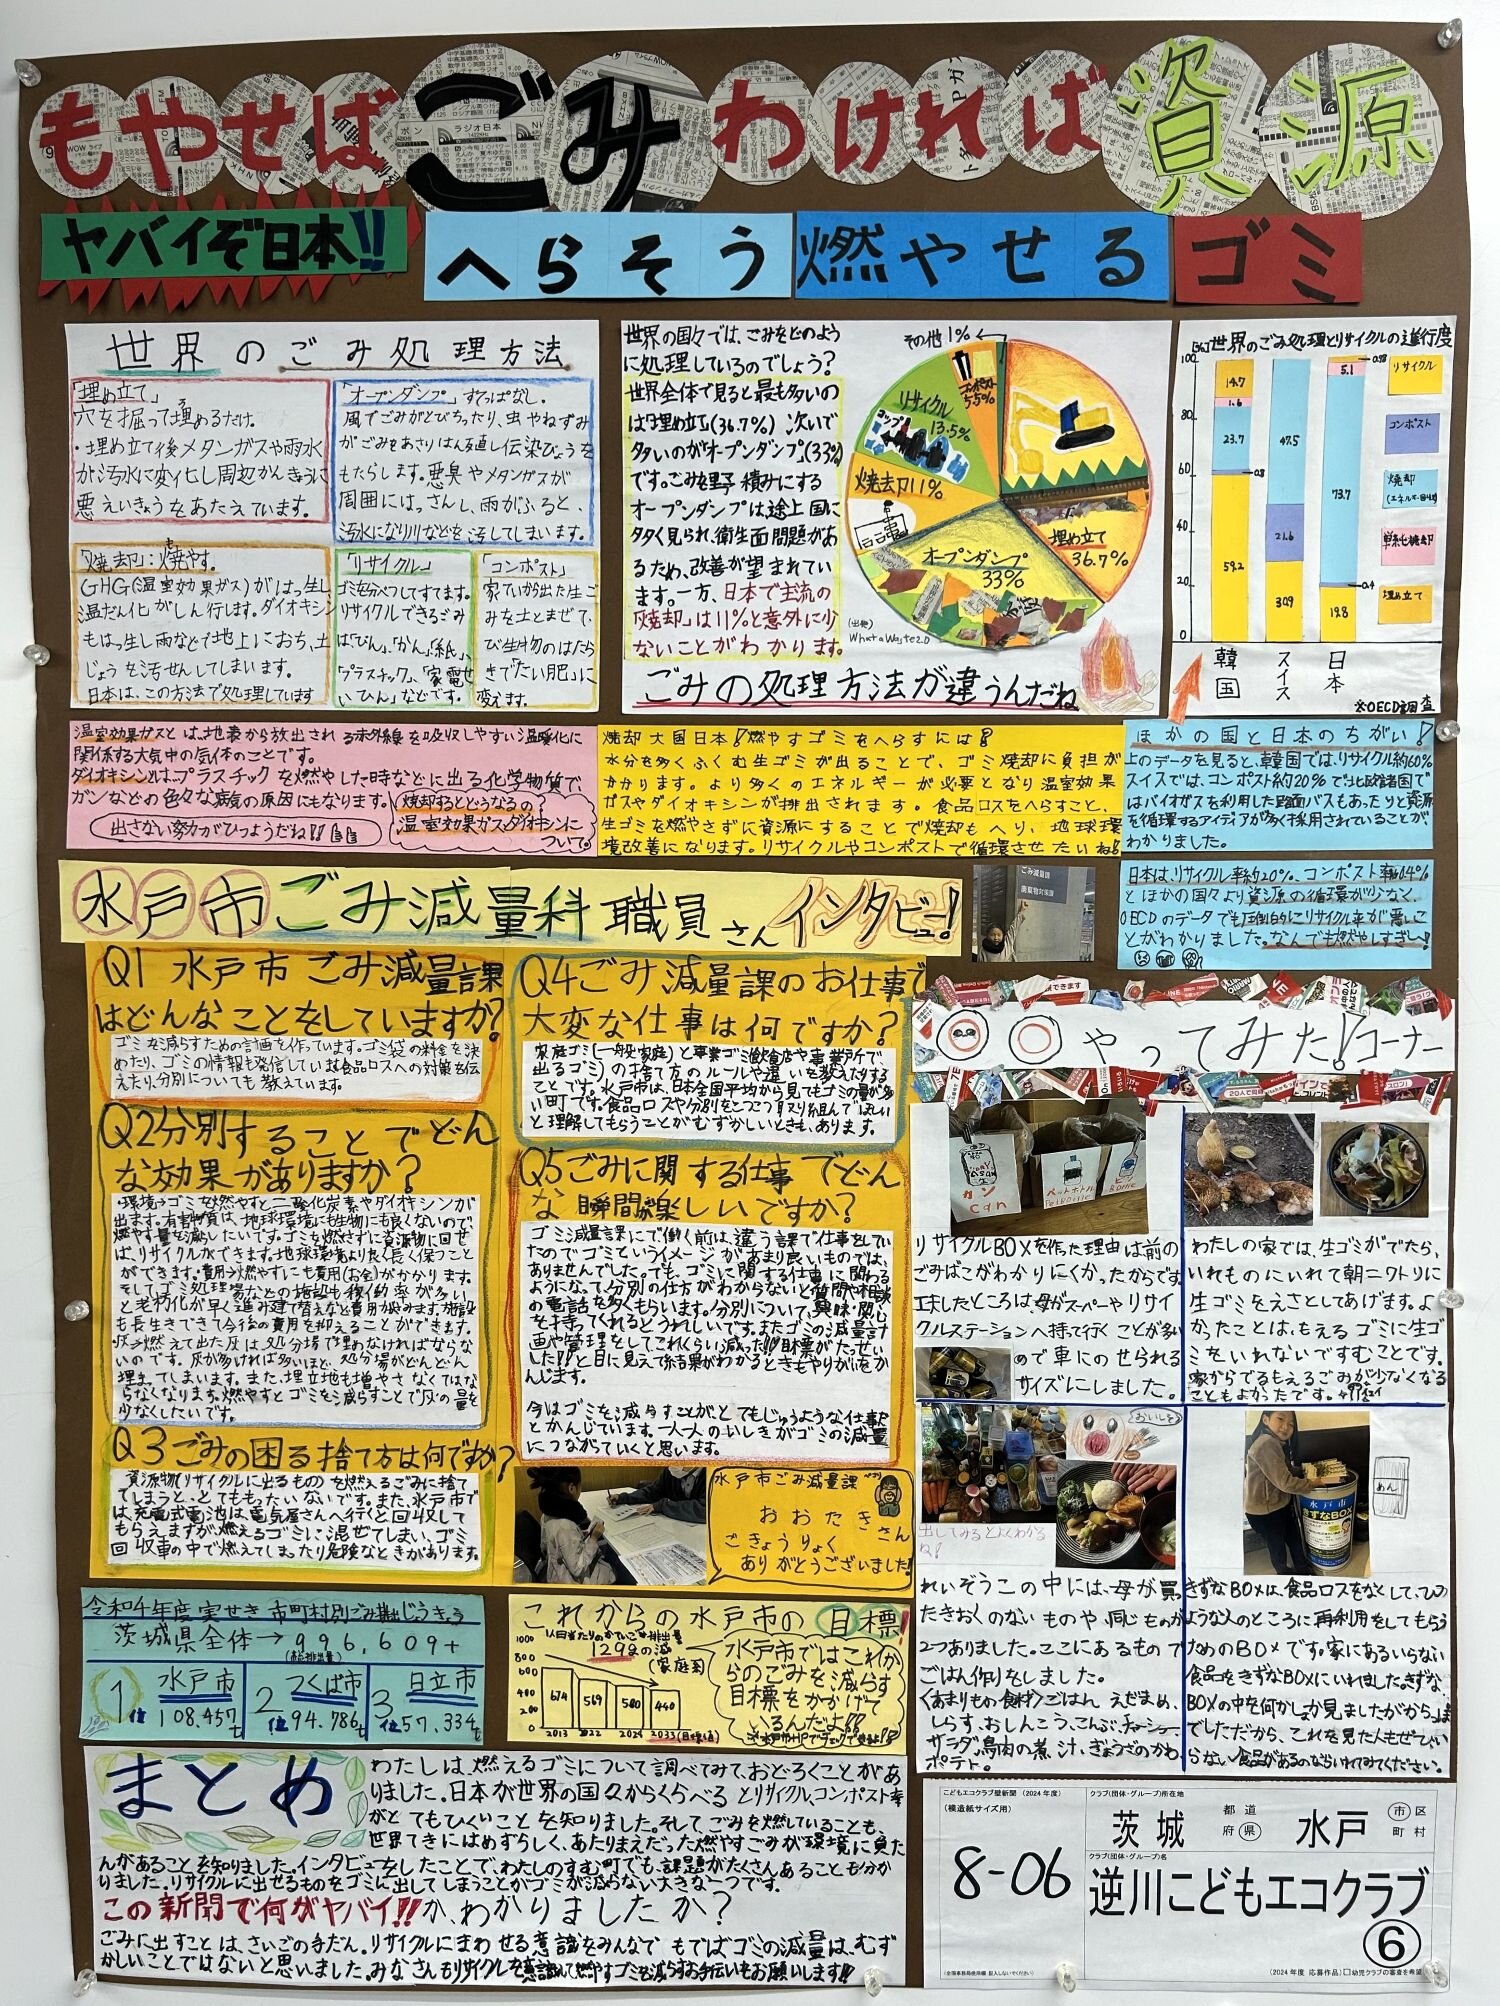 もやせばごみわければ資源
ヤバイぞ日本!!
へらそう燃やせるゴミ
世界のごみ処理方法
「埋め立て」
穴を掘って埋めるだけ。
・埋め立て後メタンガスや雨水
が汚水に変化し周辺かんきょうに
悪えいきょうをあたえています。
「オープンダンプ」すてっぱなし。
風でごみがとびちったり、虫やねずみ
がごみをあさりはん殖し伝染びょうを
もたらします。悪臭やメタンガスが
周囲にはっさんし、雨がふると、
汚水になり川などを汚してしまいます。
「焼却」:焼やす。
GHG(温室効果ガス)がはっ生し
温だん化がしん行します。ダイオキシン
もはっ生し雨などで地上におち、土
じょうを汚せんしてしまいます。
日本は、この方法で処理しています
「リサイクル」
ゴミを分べつしてすてます。
リサイクルできるごみ
は「びん」、「かん」「紙」、
「プラスチック」、「家電せ
いひん」などです。
「コンポスト」
家でいが出た生ご
みを土とまぜて、
び生物のはたら
きで「たい肥」に
変えます。
世界の国々では、ごみをどのよう
に処理しているのでしょう?
世界全体で見ると最も多いの
は「埋め立て」(36.7%)次いで
多いのが「オープンダンプ」(33%)
です。ごみを野積みにする
オープンダンプは、途上国に
多く見られ、衛生面問題があ
るため、改善が望まれてい
ます。一方、日本で主流の
「焼却」は11%と意外に少
ないことがわかります。
その他1%
コンポスト
5.5%
リサイクル
13.5%
コップ
焼却11%
オープンダンプ
33%
埋め立て
36.7%
(出典)
What a Waste2.0
ごみの処理方法が違うんだね
[%]世界のごみ処理とリサイクルの進行度
100
80
60
40
20
0
14.7
1.6
23.7
0.8
59.2
47.5
21.6
30.9
0.98
5.1
73.7
0.4
19.8
リサイクル
コンポスト
焼却
(エネルギー回収)
単純焼却
埋め立て
韓国
スイス
日本
※OECD調査
温室効果ガスとは、地表から放出される赤外線を吸収しやすい温暖化に
関係する大気中の気体のことです。
ダイオキシンは、プラスチックを燃やした時などに出る化学物質で、
ガンなどの色々な病気の原因にもなります。
出さない努力がひつようだね!!
焼却するとどうなるの?
温室効果ガスダイオキシンに
ついて。
焼却大国日本!燃やすゴミをへらすには!
水分を多くふくむ生ゴミが出ることで、ゴミ焼却に負担が
かかります。より多くのエネルギーが必要となり温室効果
ガスやダイオキシンが排出されます。食品ロスをへらすこと、
生ゴミを燃やさずに資源にすることで焼却もへり、地球環
境改善になります。リサイクルやコンポストで循環させたいね!
ほかの国と日本のちがい!
上のデータを見ると、韓国ではリサイクル約60%
スイスでは、コンポスト約20%で北欧諸国で
はバイオガスを利用した路面バスもあったりと資源
を循環するアイディアが多く採用されていることが、
わかりました。
日本は、リサイクル率約20%、コンポスト率約0.4%
とほかの国々より資源の循環が少なく、
OECDのデータでも圧倒的にリサイクル率が悪いこ
とがわかりました。なんでも燃やしすぎ〜!
水戸市ごみ減量科職員さんインタビュー!
Q1 水戸市ごみ減量課
はどんなことをしていますか?
ゴミを減らすための計画を作っています。ゴミ袋の料金を決
めたり、ゴミの情報も発信しています食品ロスへの対策を伝
えたり、分別についても教えています。
Q2分別することでどん
な効果がありますか?
・環境→ゴミを燃やすと二酸化炭素やダイオキシンが
出ます。有害物質は、地球環境にも生物にも良くないので、
燃やす量を減らしたいです。ゴミを燃やさずに資源物に回せ
ば、リサイクルができます。地球環境より良く長く保つこと
ができます。費用→燃やすにも費用(お金)がかかります。
そしてゴミ処理場などの施設も稼働率が多い
と老朽化が早く進み建て替えなど費用がかさみます。施設
も長生きできて今後の費用を抑えることができます。
・灰→燃えて出た灰は処分場で埋めなければならな
いのです。灰が多ければ多いほど、処分場がどんどん
埋まってしまいます。また、埋立地も増やさなくてはな
らなくなります。燃やすとゴミを減らすことで灰の量を
少なくしたいです。
Q3ごみの困る捨て方は何ですか?
資源物(リサイクルに出るもの)を燃えるごみに捨て
てしまうと、とてももったいないです。また、水戸市で
は、充電式電池は電気屋さんへ行くと回収して
もらえますが燃えるゴミに混ぜてしまい、ゴミ
回収車の中で燃えてしまったり危険なときがあります。
Q4ごみ減量課のお仕事で
大変な仕事は何ですか?
家庭ゴミ(一般家庭)と事業ゴミ(飲食店や事業所で
出るゴミ)の捨て方のルールや違いを教えたりする
ことです。水戸市は、日本全国平均から見てもゴミの量が多
い町です。食品ロスや分別をこつこつ取り組んでほしい
と理解してもらうことがむずかしいときも、あります。
Q5ごみに関する仕事でどん
な瞬間が楽しいですか?
ゴミ減量課にで働く前は、違う課で仕事をしてい
たのでゴミというイメージがあまり良いものでは、
ありませんでした。でも、ゴミに関する仕事に関わる
ようになって、分別の仕方がわからないと質問や相談
の電話を多くもらいます。分別について、興味・関心
を持ってくれるとうれしいです。またゴミの減量計
画や管理をしてこれくらい減った!!目標がたっせい
した!!と目に見えて結果がわかるときもやりがいをか
んじます。
今はゴミを減らすことが、とてもじゅうような仕事だ
とかんじています。一人一人のいしきがゴミの減量
につながっていくと思います。
水戸市ごみ減量課
おおたきさん
ごきょうりょく
ありがとうございました!
○○やってみた!コーナー
カン
Can
ペットボトル
Petbottle
ビン
Bottle
リサイクルBOXを作った理由は前の
ごみばこがわかりにくかったからです。
工夫したところは母がスーパーやリサイ
クルステーションへ持って行くことが多い
ので車にのせられる
サイズにしました。
わたしの家では、生ゴミがでたら、
いれものにいれて朝ニワトリに
生ゴミをえさとしてあげます。よ
かったことは、もえるゴミに生ゴ
ミをいれないですむことです。
家からでるもえるごみが少なくなる
こともよかったです。
おいしそ
出してみるとよくわかる
ね!
れいぞうこの中には、母が買っ
たきおくのないものや同じものが
2つありました。ここにあるもので
ごはん作りをしました。
〈あまりもの食材〉ごはん えだまめ、
しらす、おしんこう、こんぶ、チャーシュー
サラダ、鳥肉の煮汁、ぎょうざのかわ、
ポテト。
水戸市
きずなBOX
きずなBOXは、食品ロスをなくして、ひつ
ような人のところに再利用をしてもらう
ためのBOXです。家にあるいらない
食品をきずなBOXにいれました。きずな
BOXの中を何かしか見ましたがからっぽ
でした。だから、これを見た人もぜひ、い
らない食品があるのならいれてみてください。
令和4年度実せき市町村別ごみ排出じょうきょう
茨城県全体→996,609t
(総排出量)
1位 水戸市 108,457t
2位 つくば市 94,786t
3位 日立市 57,334t
これからの水戸市の目標!
1人1日当たりのかていごみ排出量
129gの減
(家庭用)
1000
800
600
400
200
0
674
569
500
440
2013 2022 2024 2033(目標値)
水戸市ではこれか
らのごみを減らす
目標をかかげて
いるんだよ!!
※水戸市HPでチェックできるよ!!
まとめ
わたしは、燃えるゴミについて調べてみて、おどろくことがあ
りました。日本が世界の国々からくらべるとリサイクル、コンポスト率
がとてもひくいことを知りました。そして、ごみを燃していることも、
世界てきにはめずらしく、あたりまえだった燃やすごみが環境に負た
んがあることを知りました。インタビューをしたことで、わたしのすむ町でも課題がたくさんあることも分か
りました。リサイクルに出せるものをゴミに出してしまうことがゴミが減らない大きな一つです。
この新聞で何がヤバイ!!か、わかりましたか?
ごみに出すことは、さいごの手だん。リサイクルにまわせる意識をみんなでもてばゴミの減量は、むず
かしいことではないと思いました。みなさんもリサイクルを意識して燃やすゴミを減らすお手伝いをお願いします!!
こどもエコクラブ壁新聞 (2024年度)
(模造紙サイズ用)
8-06
クラブ(団体・グループ)所在地
茨城 都道府県 水戸 市区町村
クラブ(団体・グループ)名
逆川こどもエコクラブ
⑥
(全国事務局使用欄・記入しないでください)
(2024年度 応募作品) □幼児クラブの審査を希望